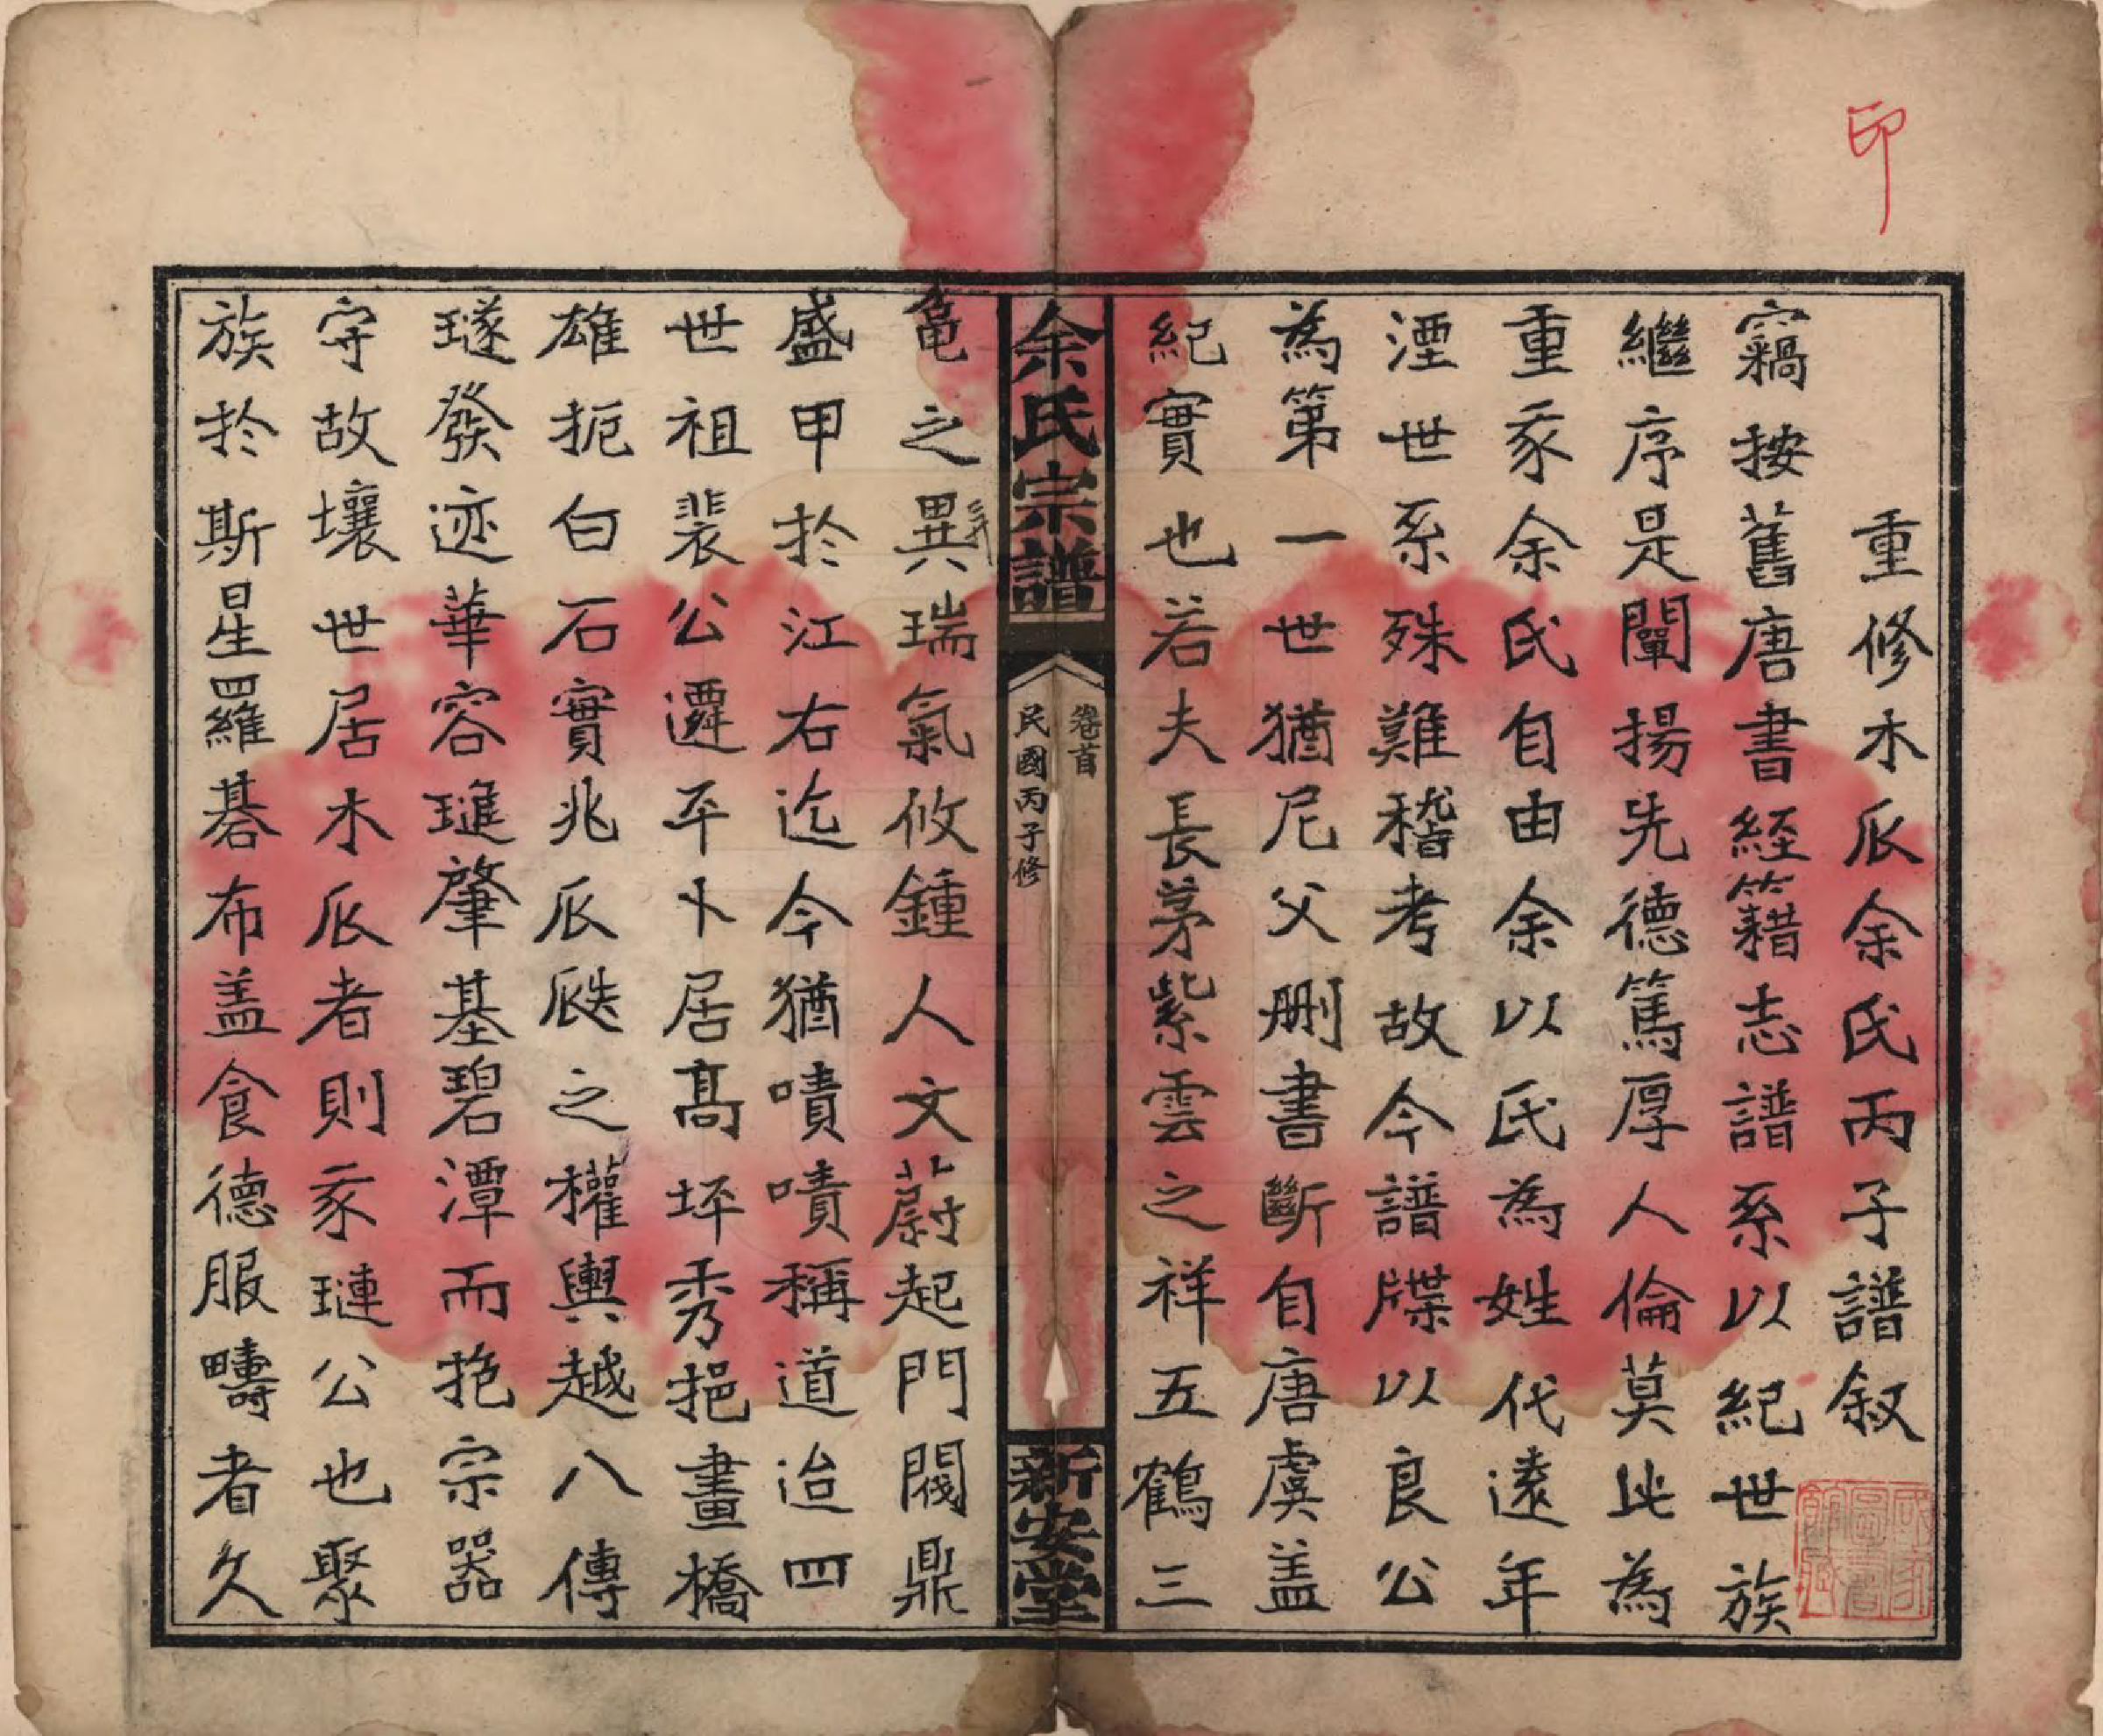 印
重修木瓜余氏丙子譜叙
竊按舊唐書経籍志譜系以紀世族
繼序是闡揚先德篤厚人倫莫此為
重家余氏自由余以氏為姓代遠年
湮世系殊難稽考故今譜牒以良公
為第一世猶尼父刪書斷自唐虞盖
紀實也若夫長茅紫雲之祥五鶴三
余氏宗譜
卷首
民國丙子修
新安堂
黽之異瑞氣攸鍾人文蔚起門閥鼎
盛甲於江右迄今猶嘖嘖稱道迨四
世祖裴公遷平卜居髙坪秀挹畫橋
雄扼白石實兆瓜瓞之權輿越八傳
璲發迹華容璡肇基碧潭而抱宗器
守故壤世居木瓜者則家璉公也聚
族於斯星羅碁布盖食德服疇者久